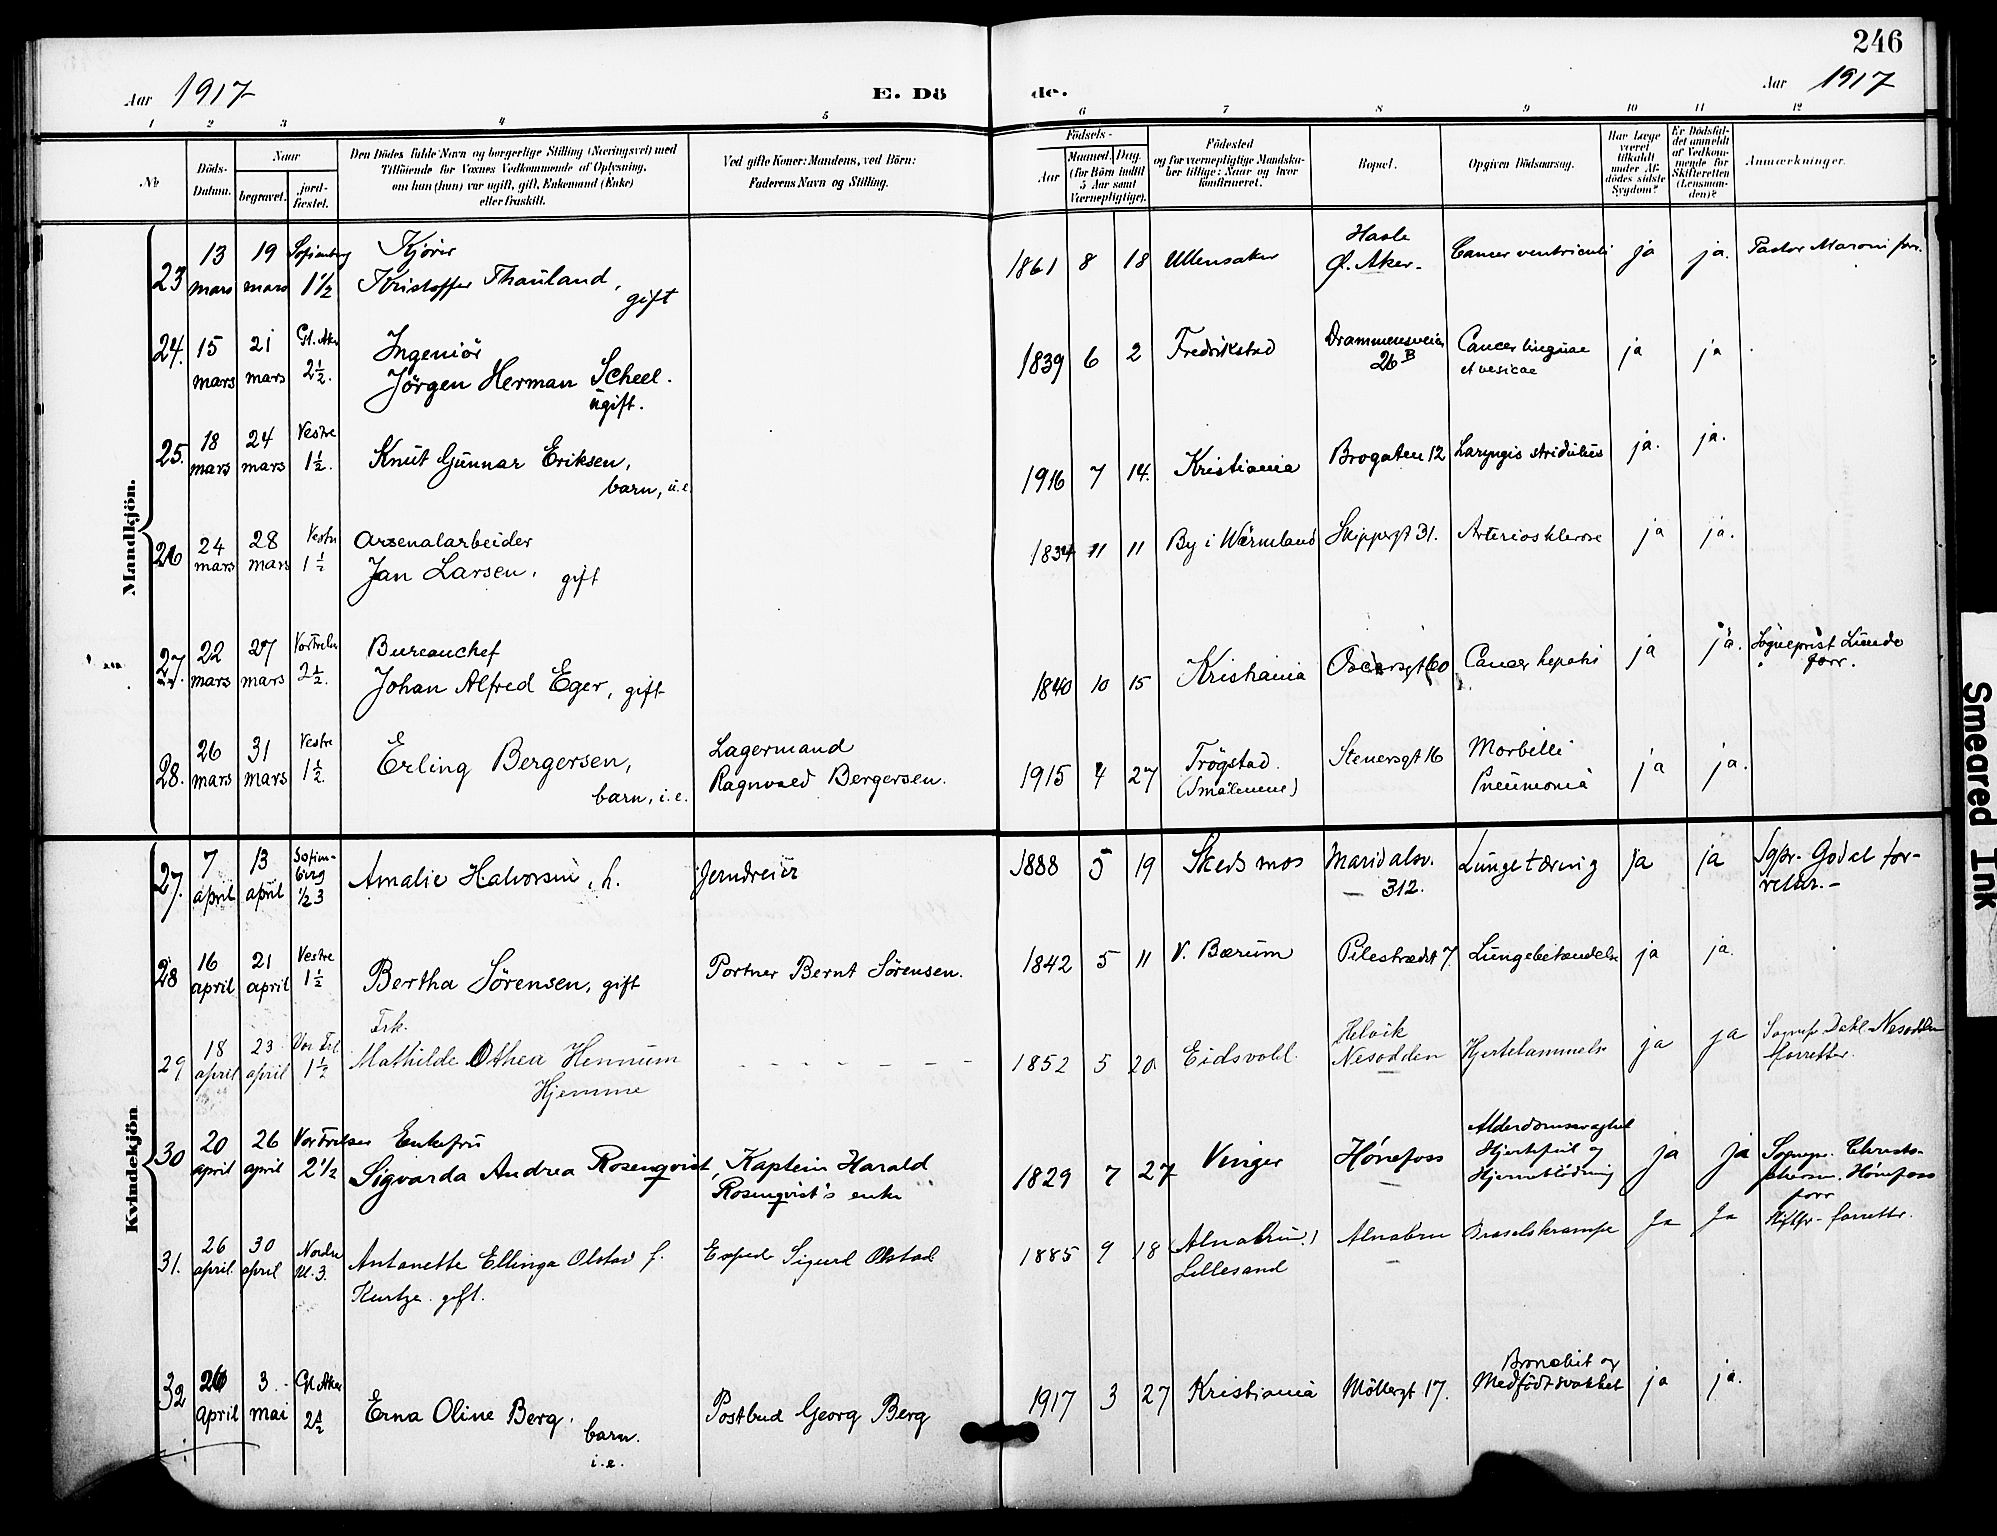 246
Aar 1917
E. Dö
de.
Aar 1917
1 2 3 4 5 6 7 8 9 10 11 12
No
Döds-
Datum.
Naar
begravet.
jord-
fæstet.
Den Dödes fulde Navn og borgerlige Stilling (Næringsvei) med
Tilföiende for Voxnes Vedkommende af Oplysning,
om han (hun) var ugift, gift, Enkemand (Enke)
eller fraskilt.
Ved gifte Koner: Mandens, ved Börn:
Faderens Navn og Stilling.
Födsels-
Aar
Maaned.
Dag.
(for Börn indtil
5 Aar samt
Værnepligtige).
Födested
og for værnepligtige Mandska-
ber tillige: Naar og hvor
konfirmeret.
Bopæl.
Opgiven Dödsaarsag.
Har Læge
været
tilkaldt
under Af-
dödes sidste
Sygdom?
Er Dödsfal-
det anmeldt
af Vedkom-
mende for
Skifteretten
(Lensman-
den)?
Anmærkninger.
Mandkjön.
23 13 mars 19 mars Sofienberg 1 1/2
Kjører
Kristoffer Thauland,
gift
1861 8 18 Ullensaker Hasle
Ø. Aker. Cancer ventriculi ja ja. Pastor Maroni forr.
24. 15 mars 21 mars Gl. Aker 2 1/2.
Ingeniör
Jörgen Herman Scheel.
ugift.
1839 6 2 Fredrikstad Drammensveien
26 B Cancer linguae
et vesicae ja ja
25. 18 mars 24 mars Vestre 1 1/2.
Knut Gunnar Eriksen,
barn, u.e.
1916 7 14. Kristiania Brogaten 12 Laryngis stridulus ja. ja.
26 24 mars 28 mars Vestre 1 1/2
Arsenalarbeider
Jan Larsen, gift
1834 11 11 By i Wärmland Skippergt 31. Arteriosklerose ja ja.
27. 22 mars 27 mars Vor Frelser 2 1/2.
Bureauchef
Johan Alfred Eger, gift
1840 10 15 Kristiania Oscarsgt 60 Cancer hepatis ja ja. Sogneprest Lunde
forr.
28. 26 mars 31 mars Vestre 1 1/2
Erling Bergersen,
barn, i.e.
Lagermand
Ragnvald Bergersen.
1915 4 27 Trögstad.
(Smålenene) Stenersgt 16 Morbilli
Pneumonia ja ja.
Kvindekjön
27. 7 april 13 april Sofien-
berg 1/2 3
Amalie Halvorsen, h. Jerndreier
1888 5 19 Skedsmos Maridalsv.
312. Lungetæring ja ja Sgpr. Godal for-
retter.-
28 16 april 21 april Vestre 1 1/2
Bertha Sörensen, gift Portner Bernt Sörensen.
1842 5 11 V. Bærum Pilestrædet 7. Lungebetændelse ja ja.
29 18 april 23 april Vor Frl 1 1/2
Frk.
Mathilde Othea Hennum
Hjemme
1852 5 20 Eidsvold. Helvik
Nesodden Hjertelammelse ja ja Sognepr Dahl Nesodden
forretter.
30 20 april 26 april Vor Frelser 2 1/2
Enkefru
Sigvarda Andrea Rosenqvist, Kaptein Harald
Rosenqvist's enke
1829 7 27 Vinger Hónefoss Alderdomssvaghet
Hjertefeil og
Hjerneblödning ja ja Sognepr. Christo-
phersen. Hónefoss
forr
31. 26 april 30 april Nordre kl. 3.
Antonette Ellinga Olstad f.
Kurtze. gift.
Exped Sigurd Olstad
1885 9 18 (Alnabru.)
Lillesand Alnabru Braselskrampe Ja Ja Stiftpr. forretter.
32 26 april 3 mai Gl Aker 2 1/2
Erna Oline Berg.
barn.
i.e.
Postbud Georg Berg
1917 3 27 Kristiania Möllergt 17. Bronchit og
Medfödt svakhet ja ja.
Smeared Ink